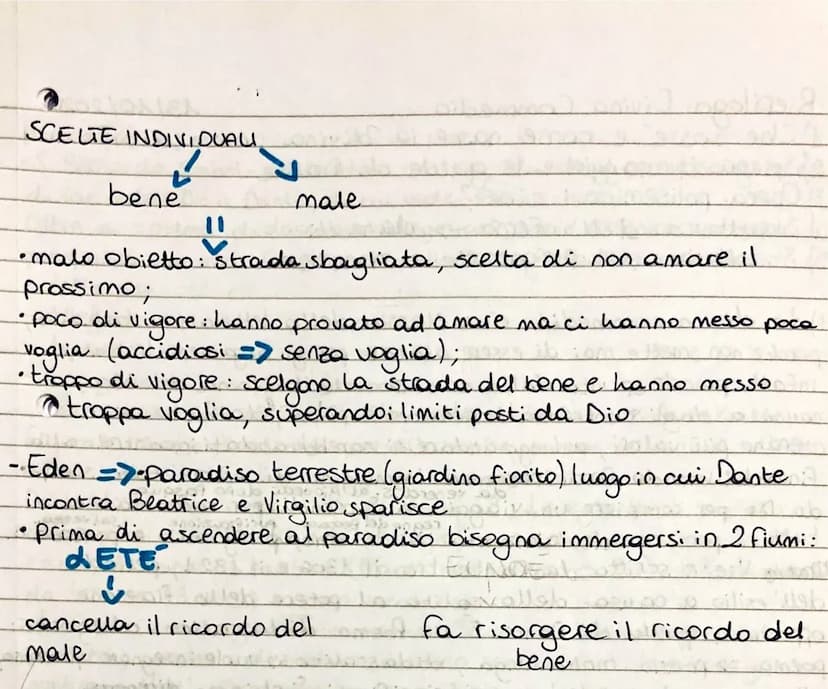 SCELTE INDIVIDUALI
bene male
• malo obietto: strada sbagliata, scelta di non amare il
prossimo;
• poco di vigore: hanno provato ad amare ma ci hanno messo poca
voglia (accidiosi => senza voglia);
• troppo di vigore: scelgono la strada del bene e hanno messo
troppa voglia, superando i limiti posti da Dio
- Eden => paradiso terrestre (giardino fiorito) luogo in cui Dante
incontra Beatrice e Virgilio sparisce
• prima di ascendere al paradiso bisogna immergersi in 2 fiumi:
LETÉ
cancella il ricordo del fa risorgere il ricordo del
male bene